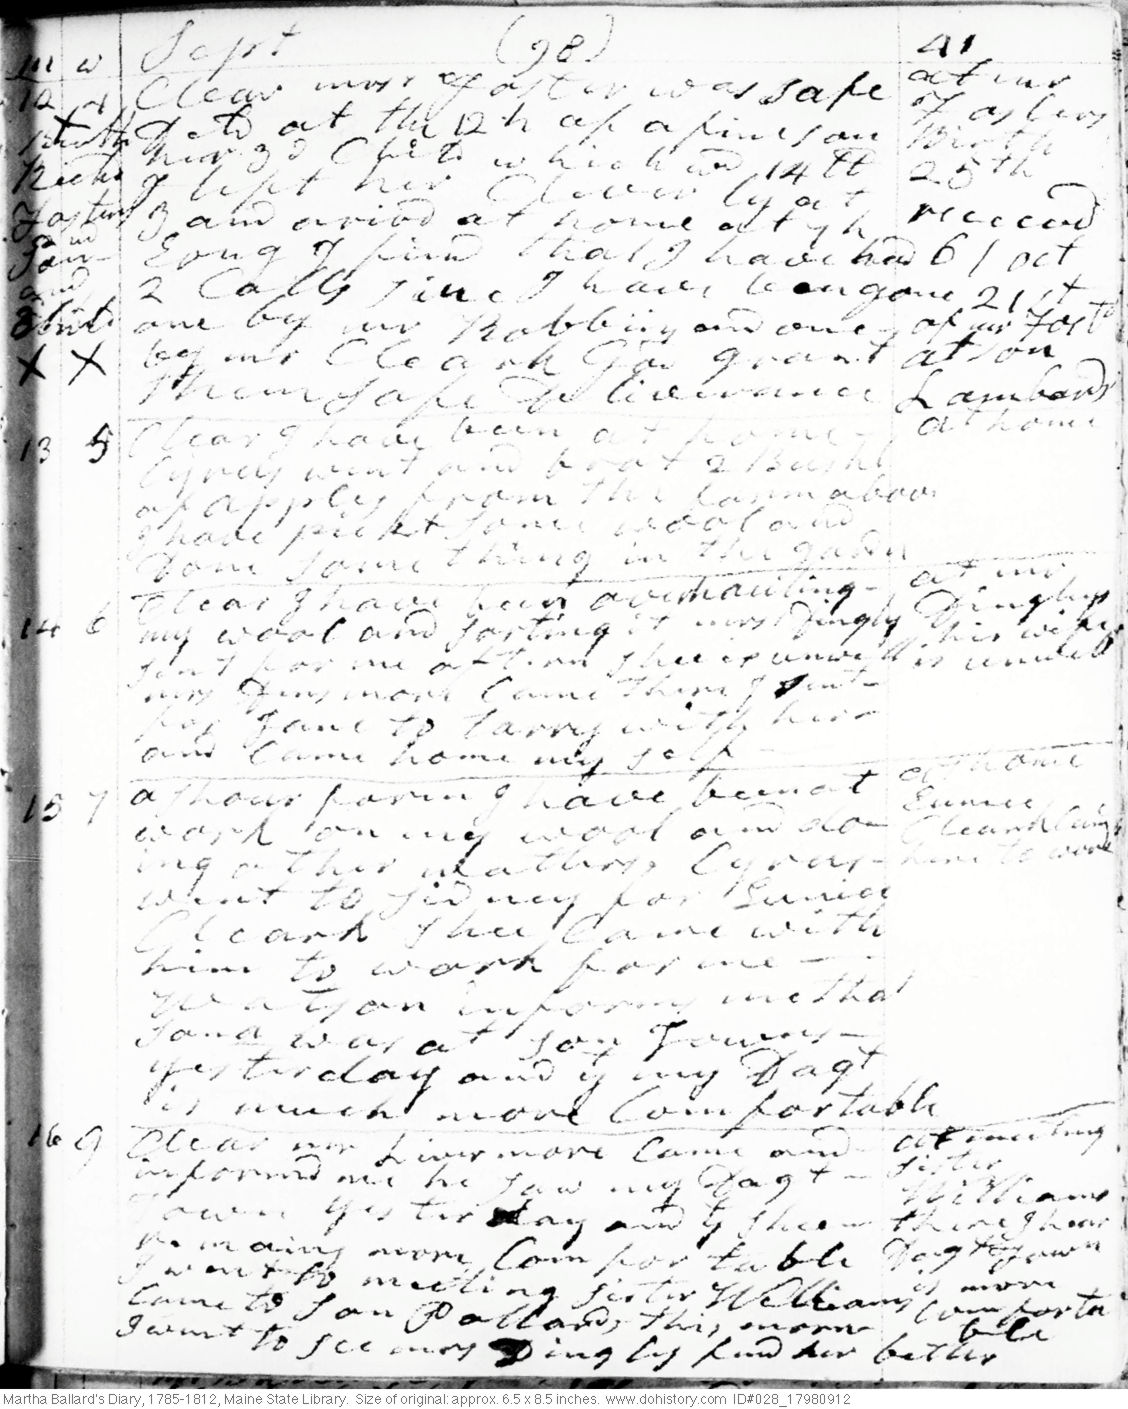 m w Sept (98) 41
12 4 Clear mrs Foster was safe
Deld at the 12 h of a fine son
her 3d Child which wd 14 lb
I left her Cleverly at
3 and arivd at home at
Eving I find that I have had
2 Calls since I have been gone
one by mr Robbins and one
by mr Cleark God grant
them safe Deliverance
at mr
Fosters
Birth
25th
receevd
6/ oct
21st
of mr Fostr
at son
Lambards
Birth
Fosters
and
Child
X X
13 5 Clear I have been at home
Cyrus went and brot 2 Bushl
of apples from the farm above
I have pickt some wool and
Done some thing in the gardn
at home
14 6 Clear I have been overhauling
my wool and sorting it mrs Dingly
sent for me aftern shee is unwell
mrs Dinsmore Came there I sent
for Jane to tarry with her
and Came home my self
at mr
Dinglys
his wife
is unwell
15 7 a shour foren I have been at
work on my wool and do
ing other matters, Cyrus
went to Sidney for Eunice
Cleark shee Came with
him to work for me
Watson informs me that
was at son Towns
yesterday and yt my Dagt
is much more Comfortable
at home
Eunice
Cleark Came
here to work
16 g Clear mr Livermore Came and
informd me he saw my Dagt
Town yesterday and yt shee
remains more Comfortable
I went to meeting sister Williams
Came to son Pollards this morn
I went to see mrs Dingly find her better
at meeting
sister
Williams
there I hear
Dagt Town
is more
Comforta
ble
Martha Ballard's Diary, 1785-1812, Maine State Library. Size of original: approx. 6.5 x 8.5 inches. www.dohistory.com ID#028_17980912